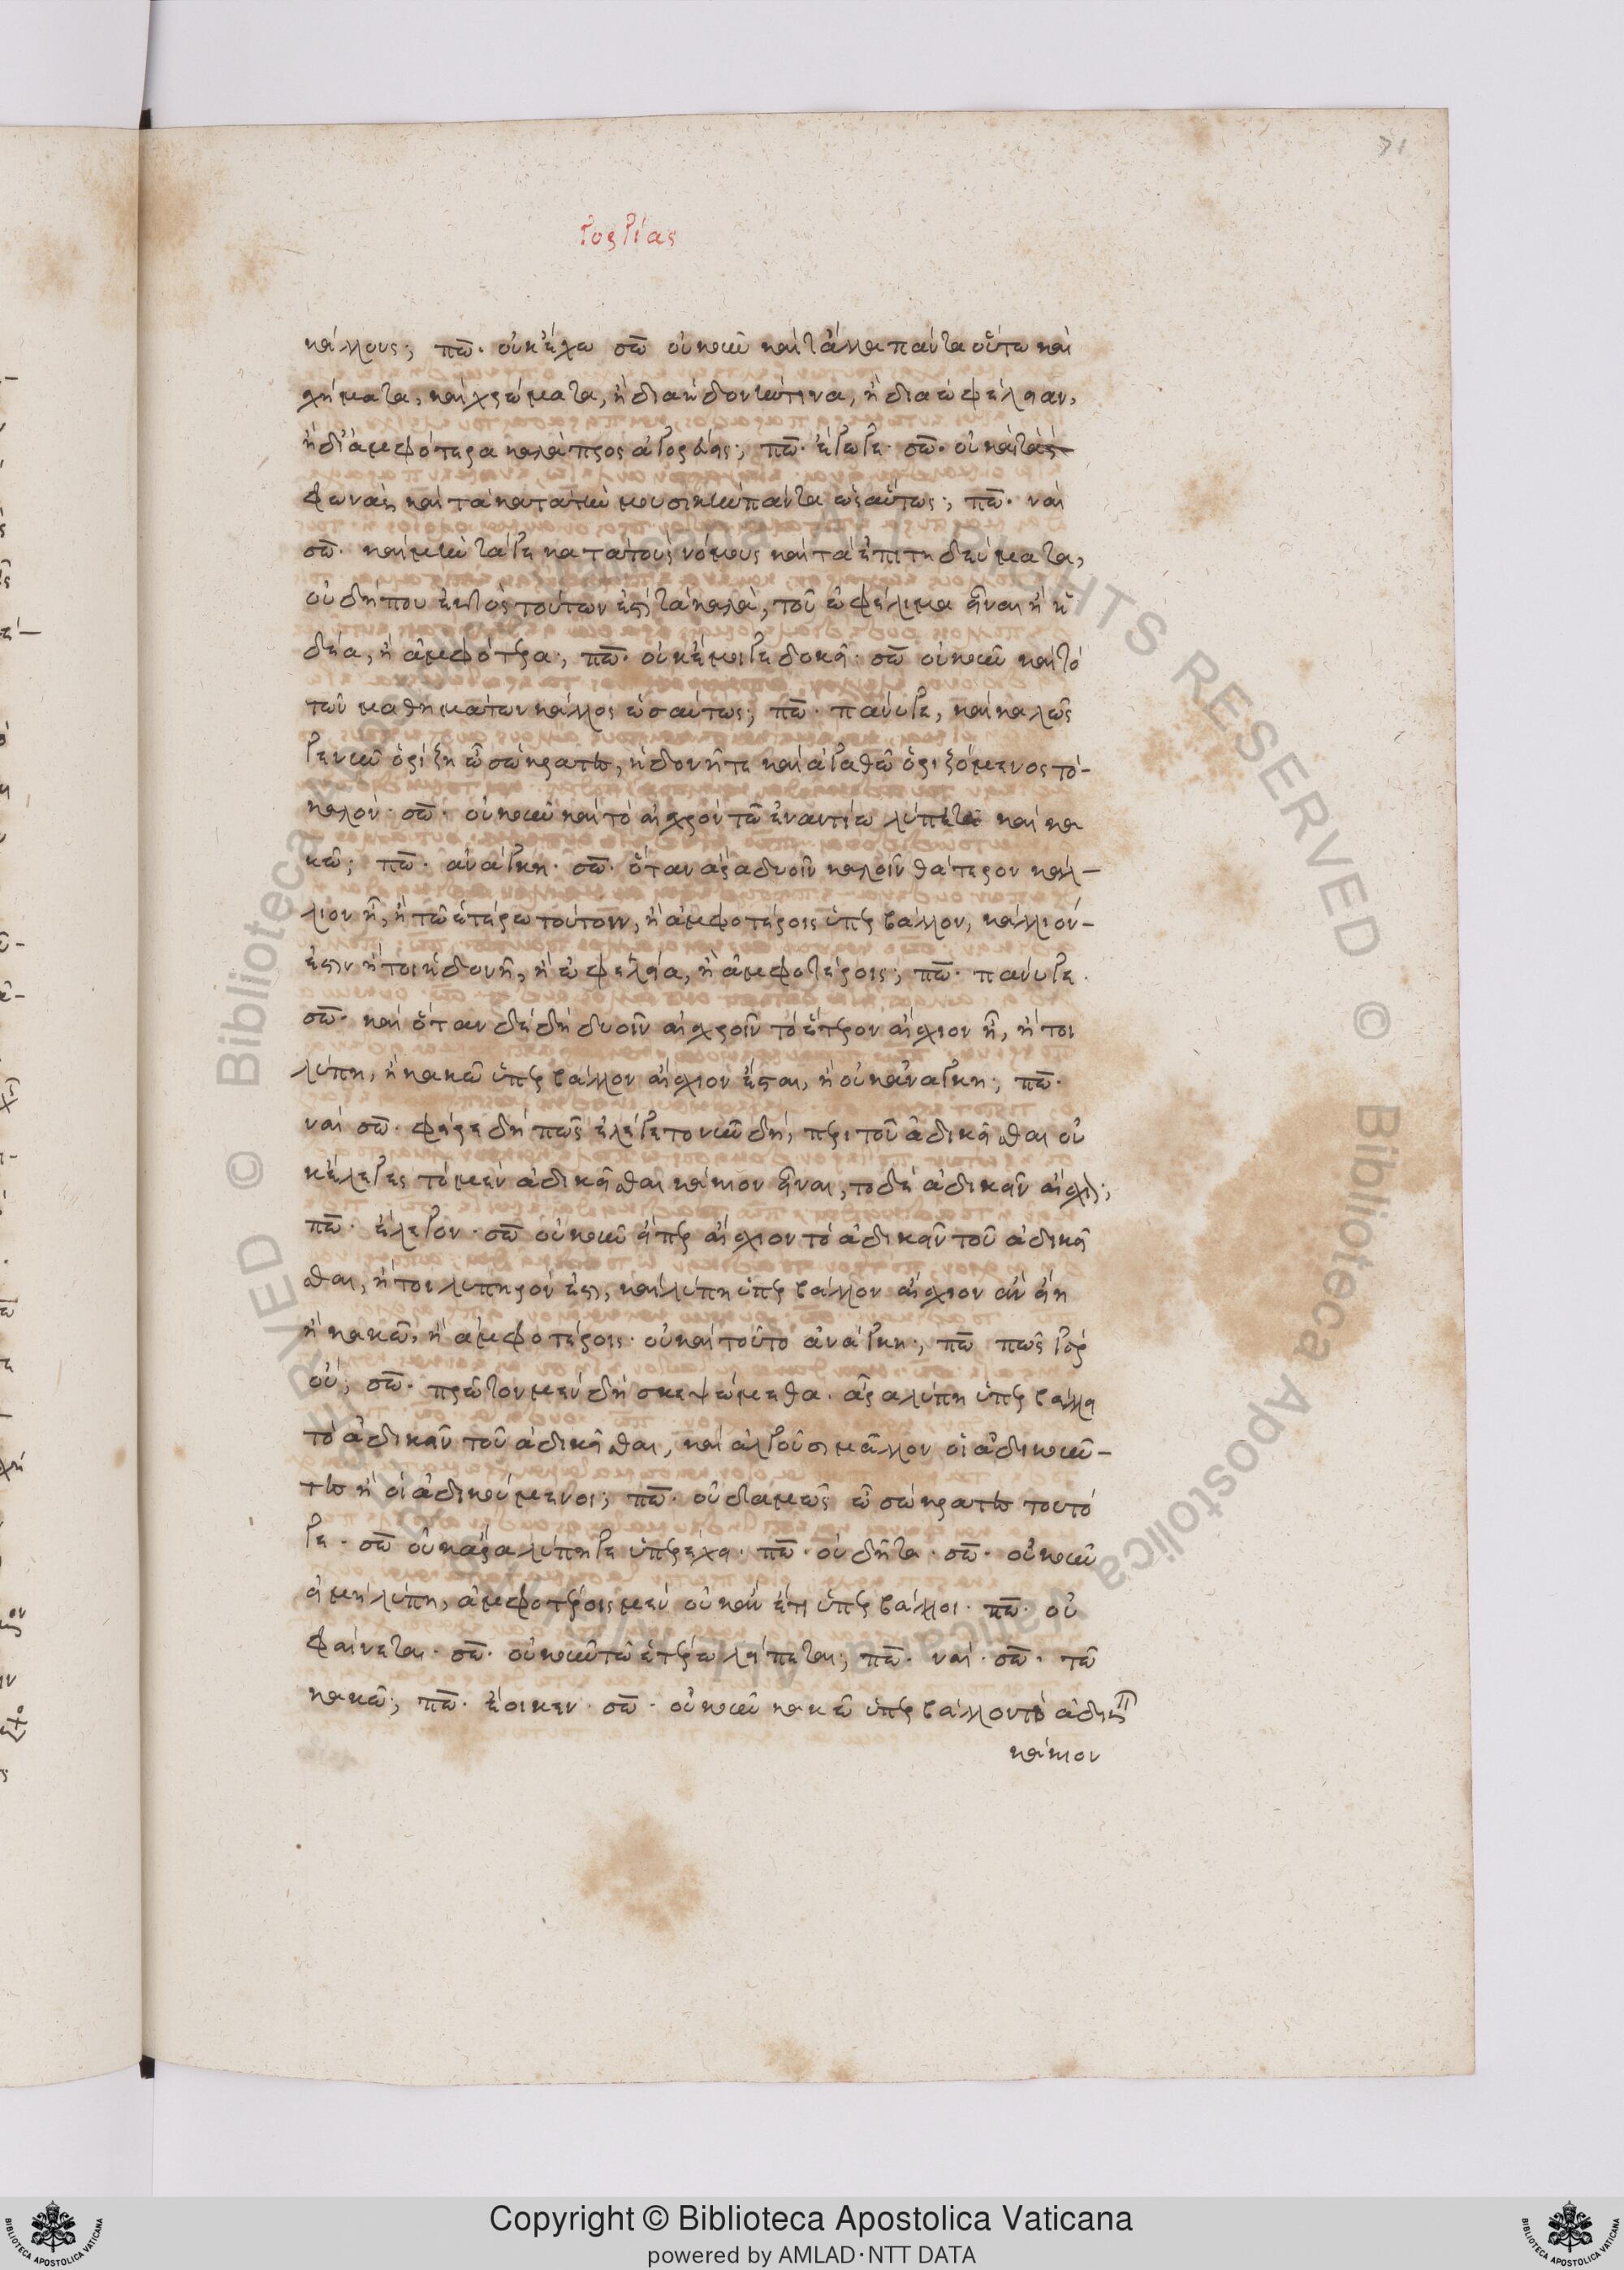 71
γοργίας
κάλλους; πω. οὐκ ἔχω σω οὐκοῦν καὶ τἆλλα πάντα οὕτω καὶ
χήματα, καὶ χρώματα, ἢ διὰ ἡδονήν τινα, ἢ δια ὠφέλειαν,
ἢ δι' ἀμφότερα καλὰ προσαγορεύεις; πω. ἔγωγε. σω. οὐ καὶ τὰς
φωνὰς καὶ τὰ κατὰ τὴν μουσικὴν πάντα ὡσαύτως; πω. ναί
σω. καὶ μὴν τάγε κατὰ τοὺς νόμους καὶ τὰ ἐπιτηδεύματα,
οὐ δήπου ἐκτὸς τούτων ἐστὶ τὰ καλὰ, τοῦ ὠφέλιμα εἶναι ἢ ἡ
δέα, ἢ ἀμφότερα; πω. οὐκ ἔμοιγε δοκεῖ. σω οὐκοῦν καὶ τὸ
τῶν μαθημάτων κάλλος ὡσαύτως; πω. πάνυ γε, καὶ καλῶς
γε νῦν ὁρίζη ὦ σώκρατες, ἡδονῆ τε καὶ ἀγαθῶ ὁριζόμενος τὸ-
καλόν. σω. οὐκοῦν καὶ τὸ αἰσχρὸν τῶ ἐναντίω λύπη τε καὶ κα
κῶ; πω. ἀνάγκη. σω. ὅταν ἄρα δυοῖν καλοῖν θάτερον κάλ-
λιον ἦ, ἢ τῶ ἑτέρω τούτοιν, ἢ ἀμφοτέροις ὑπερβάλλον, κάλλιόν-
ἐστιν ἤτοι ἡδονῆ, ἢ ὠφελεία, ἢ ἀμφοτέροις; πω. πάνυ γε.
σω. καὶ ὅταν δὲ δὴ δυοῖν αἰσχροῖν τὸ ἕτερον αἴσχιον ἦ, ἤτοι
λύπη, ἢ κακῶ ὑπερβάλλον αἴσχιον ἔσται, ἢ οὐκ ἀνάγκη; πω.
ναί σω. φέρε δὴ πῶς ἐλέγετο νῦν δὴ, περὶ τοῦ ἀδικεῖσθαι οὐ
κ ἔλεγες τὸ μὲν ἀδικεῖσθαι κάκιον εἶναι, τὸ δὲ ἀδικεῖν αἴσχιον;
πω. ἔλεγον. σω οὐκοῦν εἴπερ αἴσχιον τὸ ἀδικεῖν τοῦ ἀδικεῖ
σθαι, ἤτοι λυπηρόν ἐστι, καὶ λύπη ὑπερβάλλον αἴσχιον ἂν εἴη
ἢ κακῶ, ἢ ἀμφοτέροις. οὐ καὶ τοῦτο ἀνάγκη; πω πῶς γὰρ
οὔ; σω. πρῶτον μὲν δὴ σκεψώμεθα. ἆρα λύπη ὑπερβάλλει
τὸ ἀδικεῖν τοῦ ἀδικεῖσθαι, καὶ ἀλγοῦσι μᾶλλον οἱ ἀδικοῦν-
τες ἢ οἱ ἀδικούμενοι; πω. οὐδαμῶς ὦ σώκρατες τουτό
γε. σω οὐκ ἄρα λύπη γε ὑπερέχει. πω. οὐ δῆτα. σω. οὐκοῦν
εἰ μὴ λύπη, ἀμφοτέροις μὲν οὐκ ἂν ἔτι ὑπερβάλλοι. πω. οὐ
φαίνεται. σω. οὐκοῦν τῶ ἑτέρω λείπεται; πω. ναί. σω. τῶ
κακῶ; πω. ἔοικεν. σω. οὐκοῦν κακῶ ὑπερβάλλον τὸ ἀδικεῖν
κάκιον
Copyright © Biblioteca Apostolica Vaticana
powered by AMLAD·NTT DATA